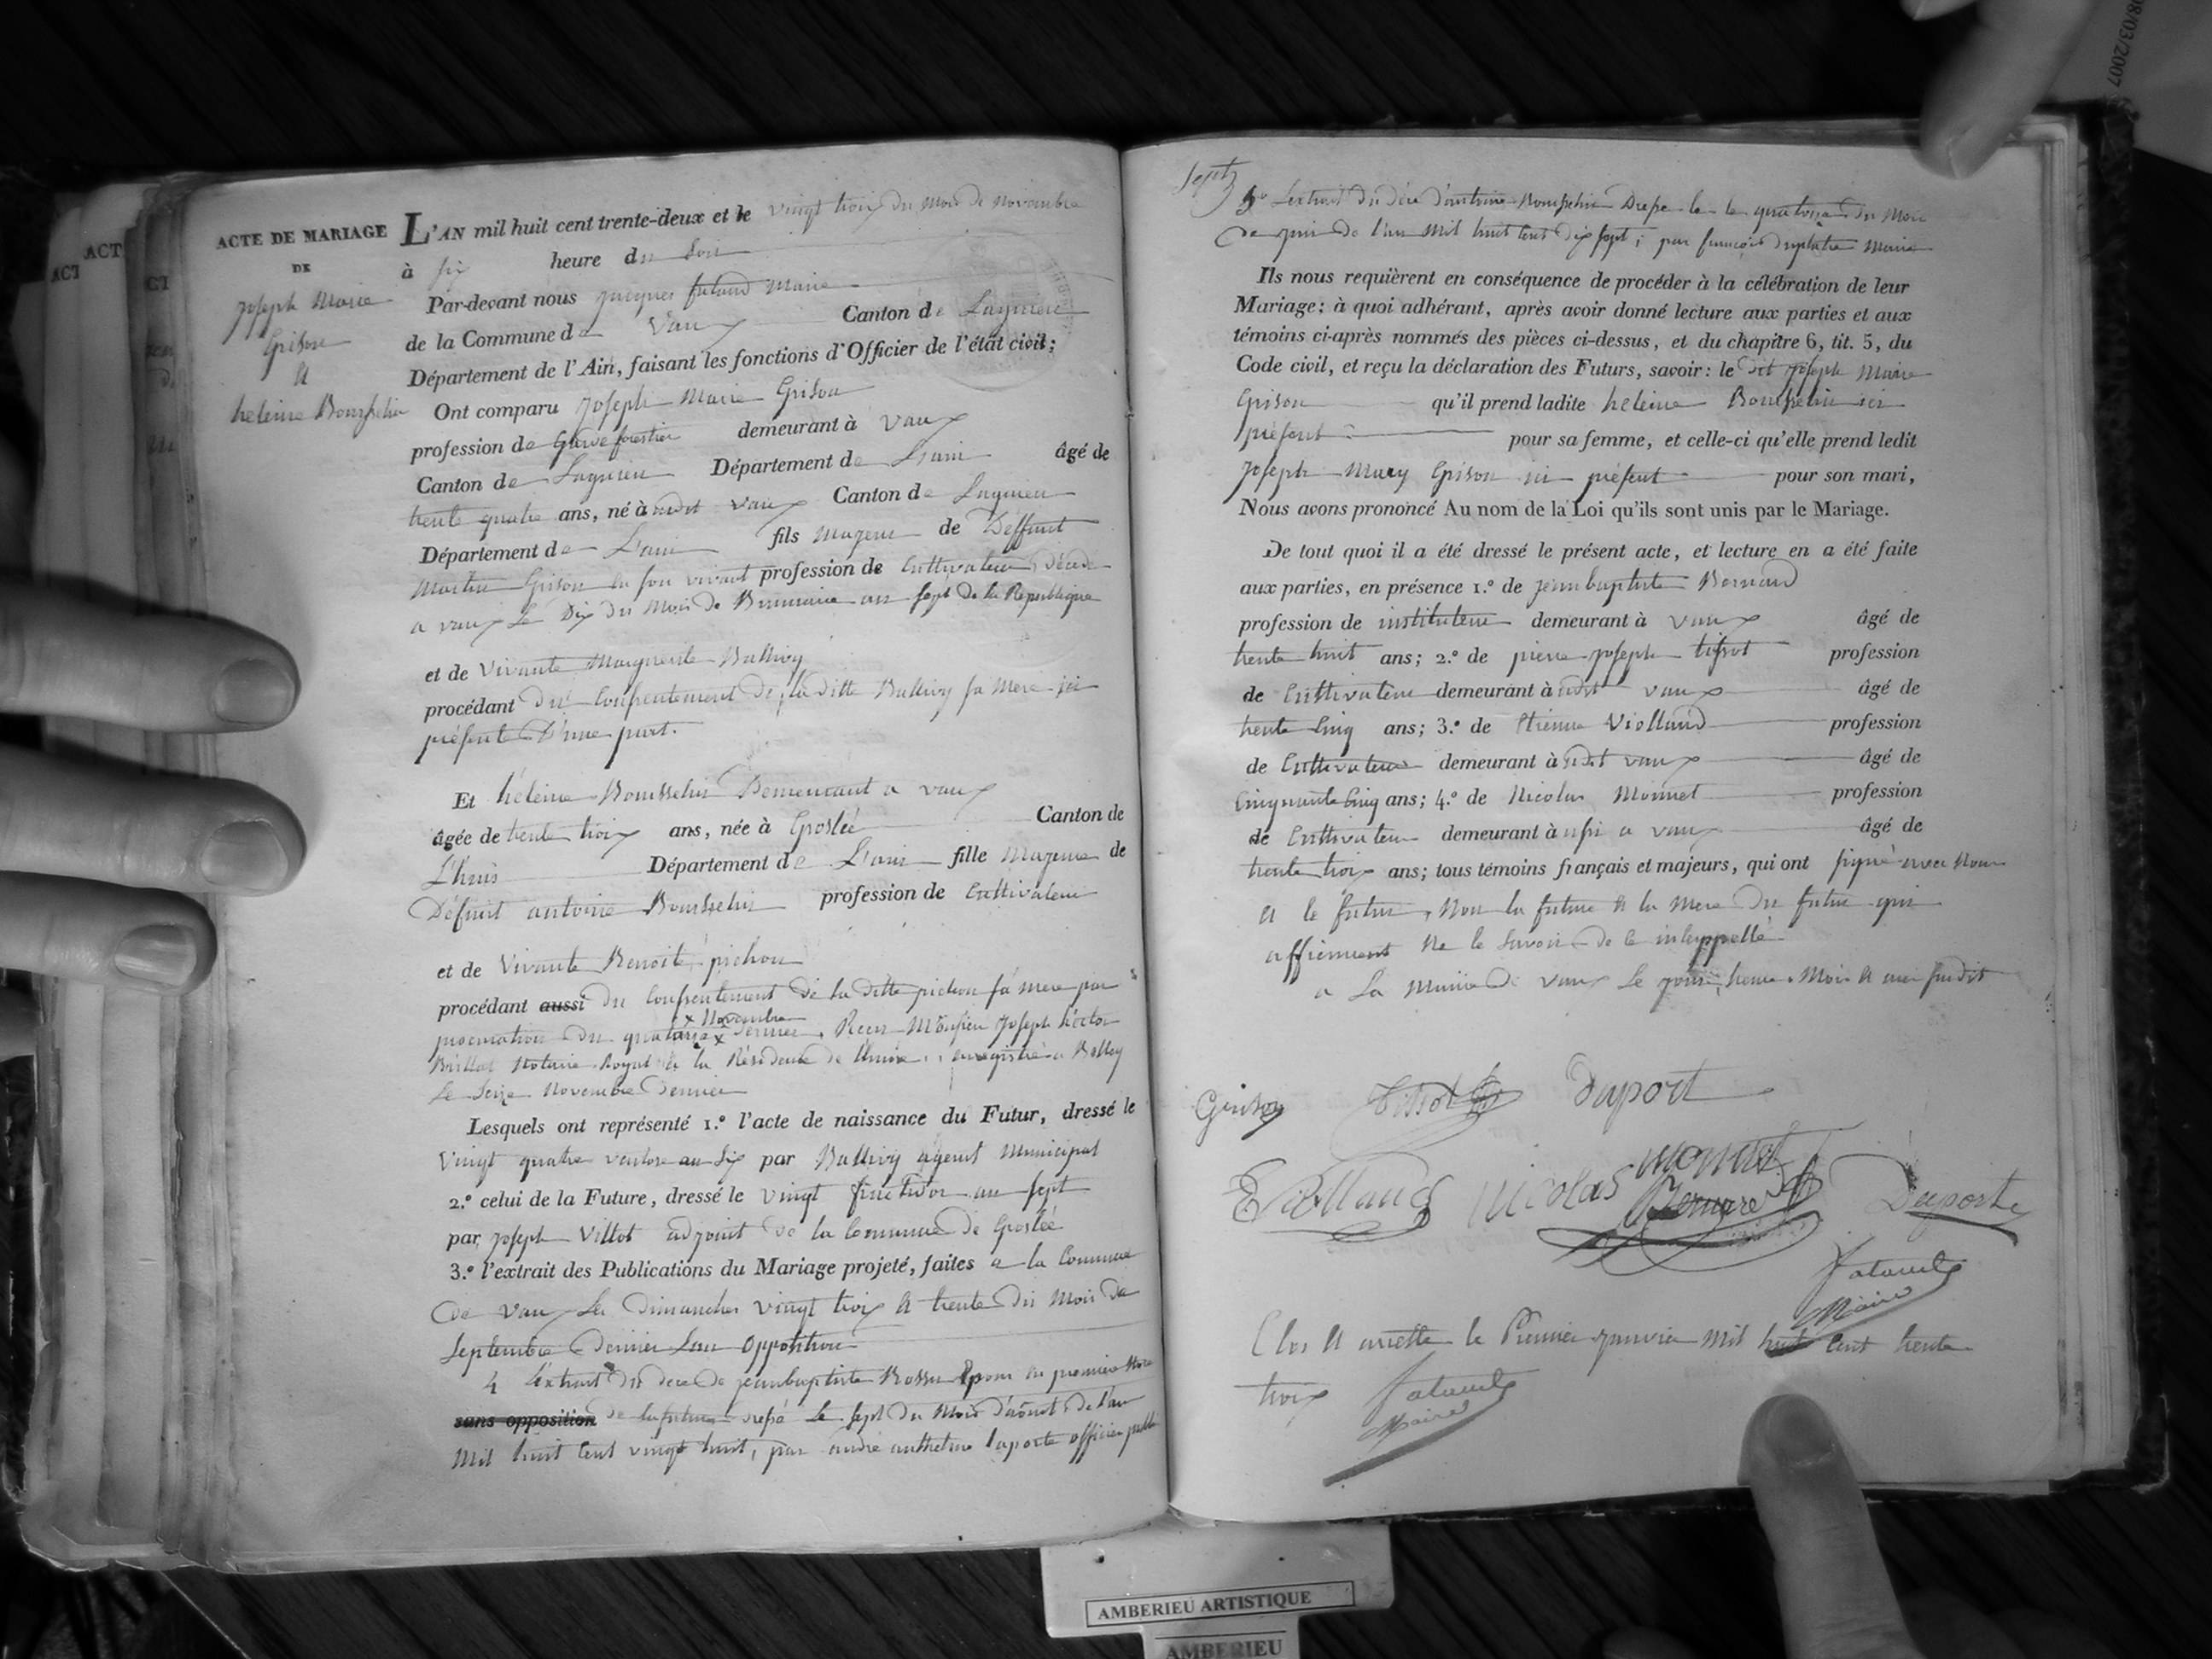 ACTE DE MARIAGE
DE
Joseph Marie
Grison
et
heleine Bousselin
L'AN mil huit cent trente-deux et le vingt trois du mois de novembre
à six heure du soir
Par-devant nous jacques falaud Maire
de la Commune de Vaux Canton de Lagnieu
Département de l'Ain, faisant les fonctions d'Officier de l'état civil;
Ont comparu Joseph Marie Grison
profession de Garde forestier demeurant à vaux
Canton de Lagnieu Département de L'ain âgé de
trente quatre ans, né à audit vaux Canton de Lagnieu
Département de L'ain fils mageur de Deffunt
Martin Grison en son vivant profession de Cultivateur, décédé
a vaux Le Dix du Mois de Brumaire an sept de la Republique
et de Vivante Marguerite Ballivy
procédant du Consentement de la ditte Ballivy sa Mere ici
présente D'une part.
Et héleine Bousselin Demeurant a vaux
âgée de trente trois ans, née à Groslée Canton de
L'huis Département de L'ain fille Mageure de
Défunt antoine Bousselin profession de Cultivateur
et de Vivante Benoite pichon
procédant aussi du Consentement de la ditte pichon sa mere par
x Novembre
procuration du quatorze x dernier, Recu Monsieur Joseph hector
Brillat Notaire Royal a la Résidence de Lhuis, enregistré a Belley
Le Seize Novembre Dernier
Lesquels ont représenté 1.º l'acte de naissance du Futur, dressé le
Vingt quatre ventose an Six par Ballivy agent Municipal
2.º celui de la Future, dressé le vingt fructidor an sept
par Joseph Villot adjoint de la Commune de Groslée
3.º l'extrait des Publications du Mariage projeté, faites a la Commune
de vaux Les dimanches vingt trois et trente du Mois de
Septembre Dernier Sans Opposition
4 L'extrait du décé de jeanbaptiste Rossu Epoux en premiere Noce
sans opposition de la future dressé Le sept du Mois d'aôust de l'an
Mil huit Cent vingt huit, par andré anthelme laporte officier public
5º L'extrait du décé d'antoine Bousselin Dressé le quatorze du Mois
de juin de l'an Mil huit Cent dix sept; par françois duplatre Maire
Ils nous requièrent en conséquence de procéder à la célébration de leur
Mariage: à quoi adhérant, après avoir donné lecture aux parties et aux
témoins ci-après nommés des pièces ci-dessus, et du chapitre 6, tit. 5, du
Code civil, et reçu la déclaration des Futurs, savoir: le dit Joseph Marie
Grison qu'il prend ladite heleine Bousselin ici
présent pour sa femme, et celle-ci qu'elle prend ledit
Joseph Mary Grison ici présent pour son mari,
Nous avons prononcé Au nom de la Loi qu'ils sont unis par le Mariage.
De tout quoi il a été dressé le présent acte, et lecture en a été faite
aux parties, en présence 1.º de jeanbaptiste Bernard
profession de instituteur demeurant à vaux âgé de
trente huit ans; 2.º de pierre joseph tissot profession
de Cultivateur demeurant à udit vaux âgé de
trente Cinq ans; 3.º de Etienne Violland profession
de Cultivateur demeurant à udit vaux âgé de
Cinquante Cinq ans; 4.º de Nicolas Monnet profession
de Cultivateur demeurant à ussi a vaux âgé de
trente trois ans; tous témoins français et majeurs, qui ont signé avec Nous
et le futur, Non la future et la Mere du futur qui
affirment Ne le Savoir de ce interppellé
a La Mairie de vaux Le jour, heure, Mois et an susdit
Grison Tissot Duport
E Violland Nicolas monnet
Bernard Duporte
falaud
Maire
Clos et arretté le Premier janvier Mil huit Cent trente
trois falaud
Maire
AMBERIEU ARTISTIQUE
AMBERIEU
08/03/2007